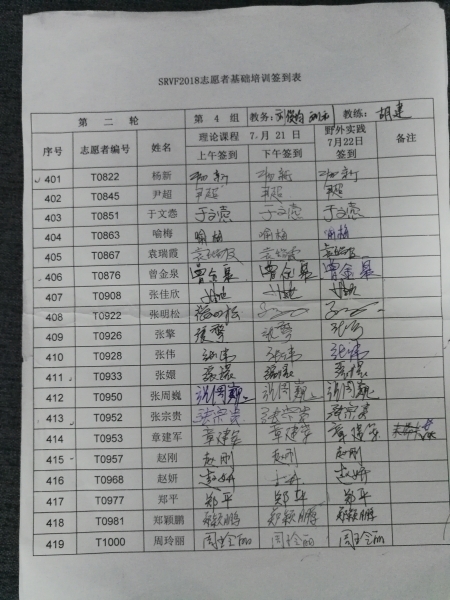 SRVF2018志愿者基础培训签到表
第 二 轮 第 4 组 教务: 教练: 胡建
序号 志愿者编号 姓名 理论课程 7月21日 野外实践 7月22日 签到 备注
上午签到 下午签到
401 T0822 杨新 杨新 杨新 杨新
402 T0845 尹超 尹超 尹超 尹超
403 T0851 于文悫 于文悫 于文悫 于文悫
404 T0863 喻梅 喻梅 喻梅 喻梅
405 T0867 袁瑞霞 袁瑞霞 袁瑞霞 袁瑞霞
406 T0876 曾金泉 曾金泉 曾金泉 曾金泉
407 T0908 张佳欣
408 T0922 张明松 张明松
409 T0926 张擎 张擎 张擎
410 T0928 张伟 张伟 张伟 张伟
411 T0933 张嬛
412 T0950 张周巍 张周巍 张周巍 张周巍
413 T0952 张宗贵 张宗贵 张宗贵 张宗贵
414 T0953 章建军 章建军 章建军 章建军
415 T0957 赵刚 赵刚 赵刚 赵刚
416 T0968 赵妍 赵妍 赵妍
417 T0977 郑平 郑平 郑平 郑平
418 T0981 郑颖鹏 郑颖鹏 郑颖鹏 郑颖鹏
419 T1000 周玲丽 周玲丽 周玲丽 周玲丽